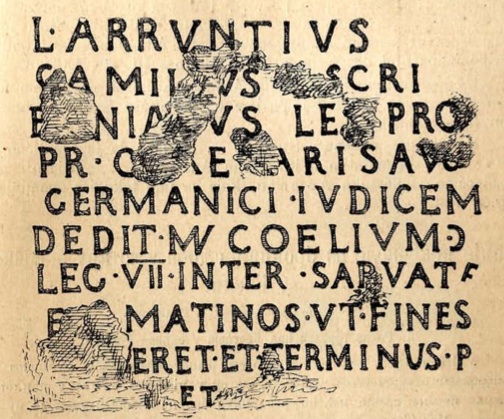 L·ARRVNTIVS
CAMIL VS SCRI
NIA VS LE PRO
PR·C AE ARIS AVG
GERMANICI·IVDICEM
DEDIT·M COELIVM Ɔ
LEG·VII·INTER·SAPVAT
E MATINOS·VT·FINES
ERET·ET·TERMINUS·P
ET